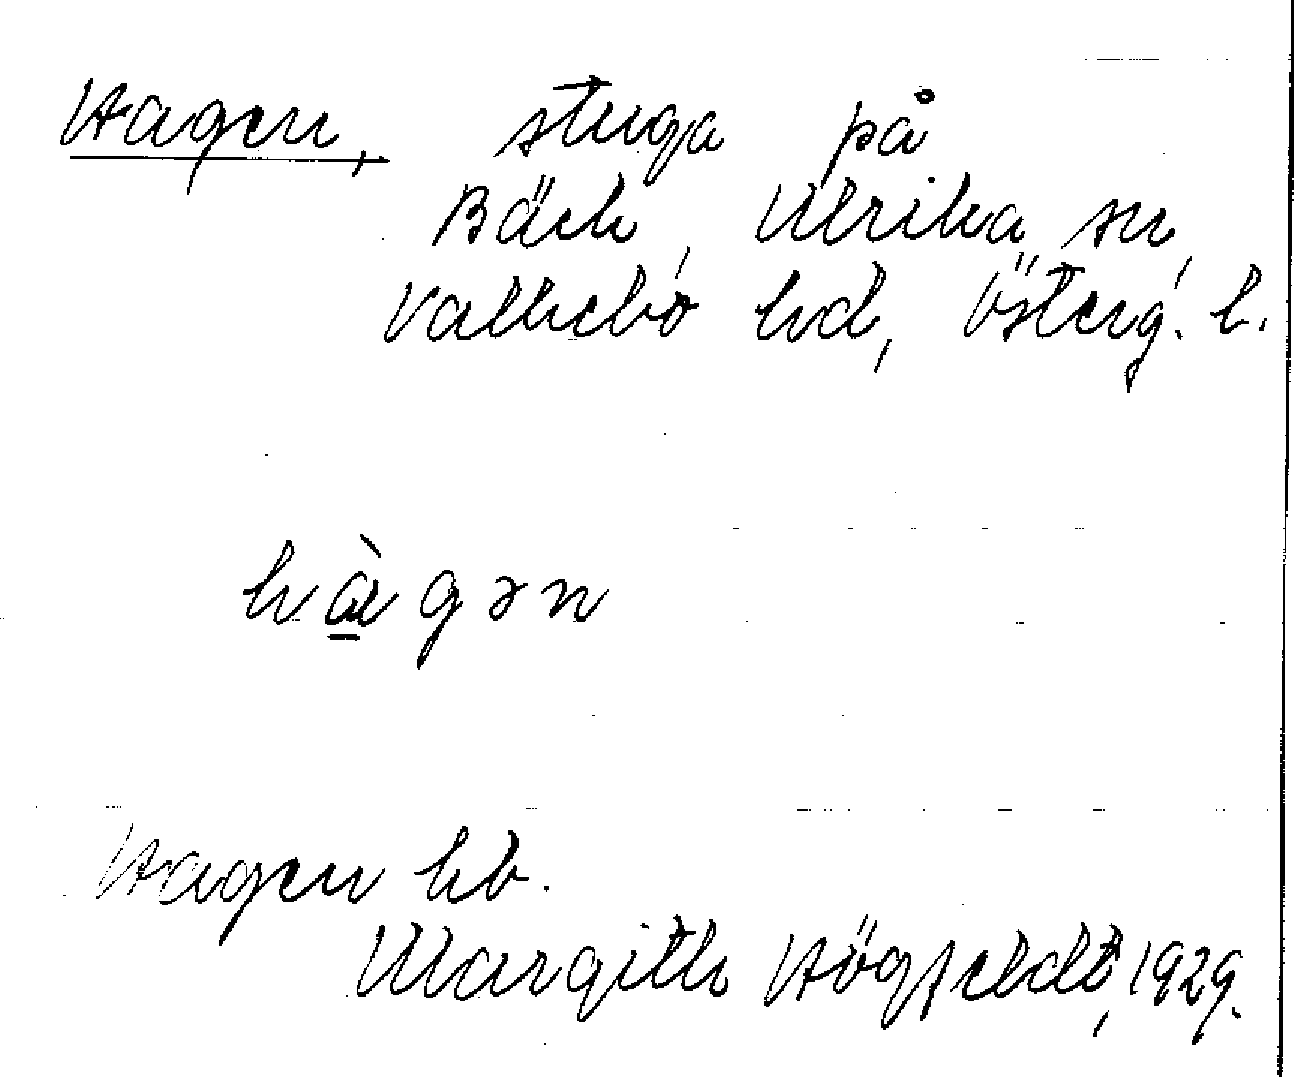 Hagen, stuga på
Bäck, Ulrika sn,
Valkebo hd, Österg. l.
hàgən
Hagen kb.
Margith Högfeldt, 1929.